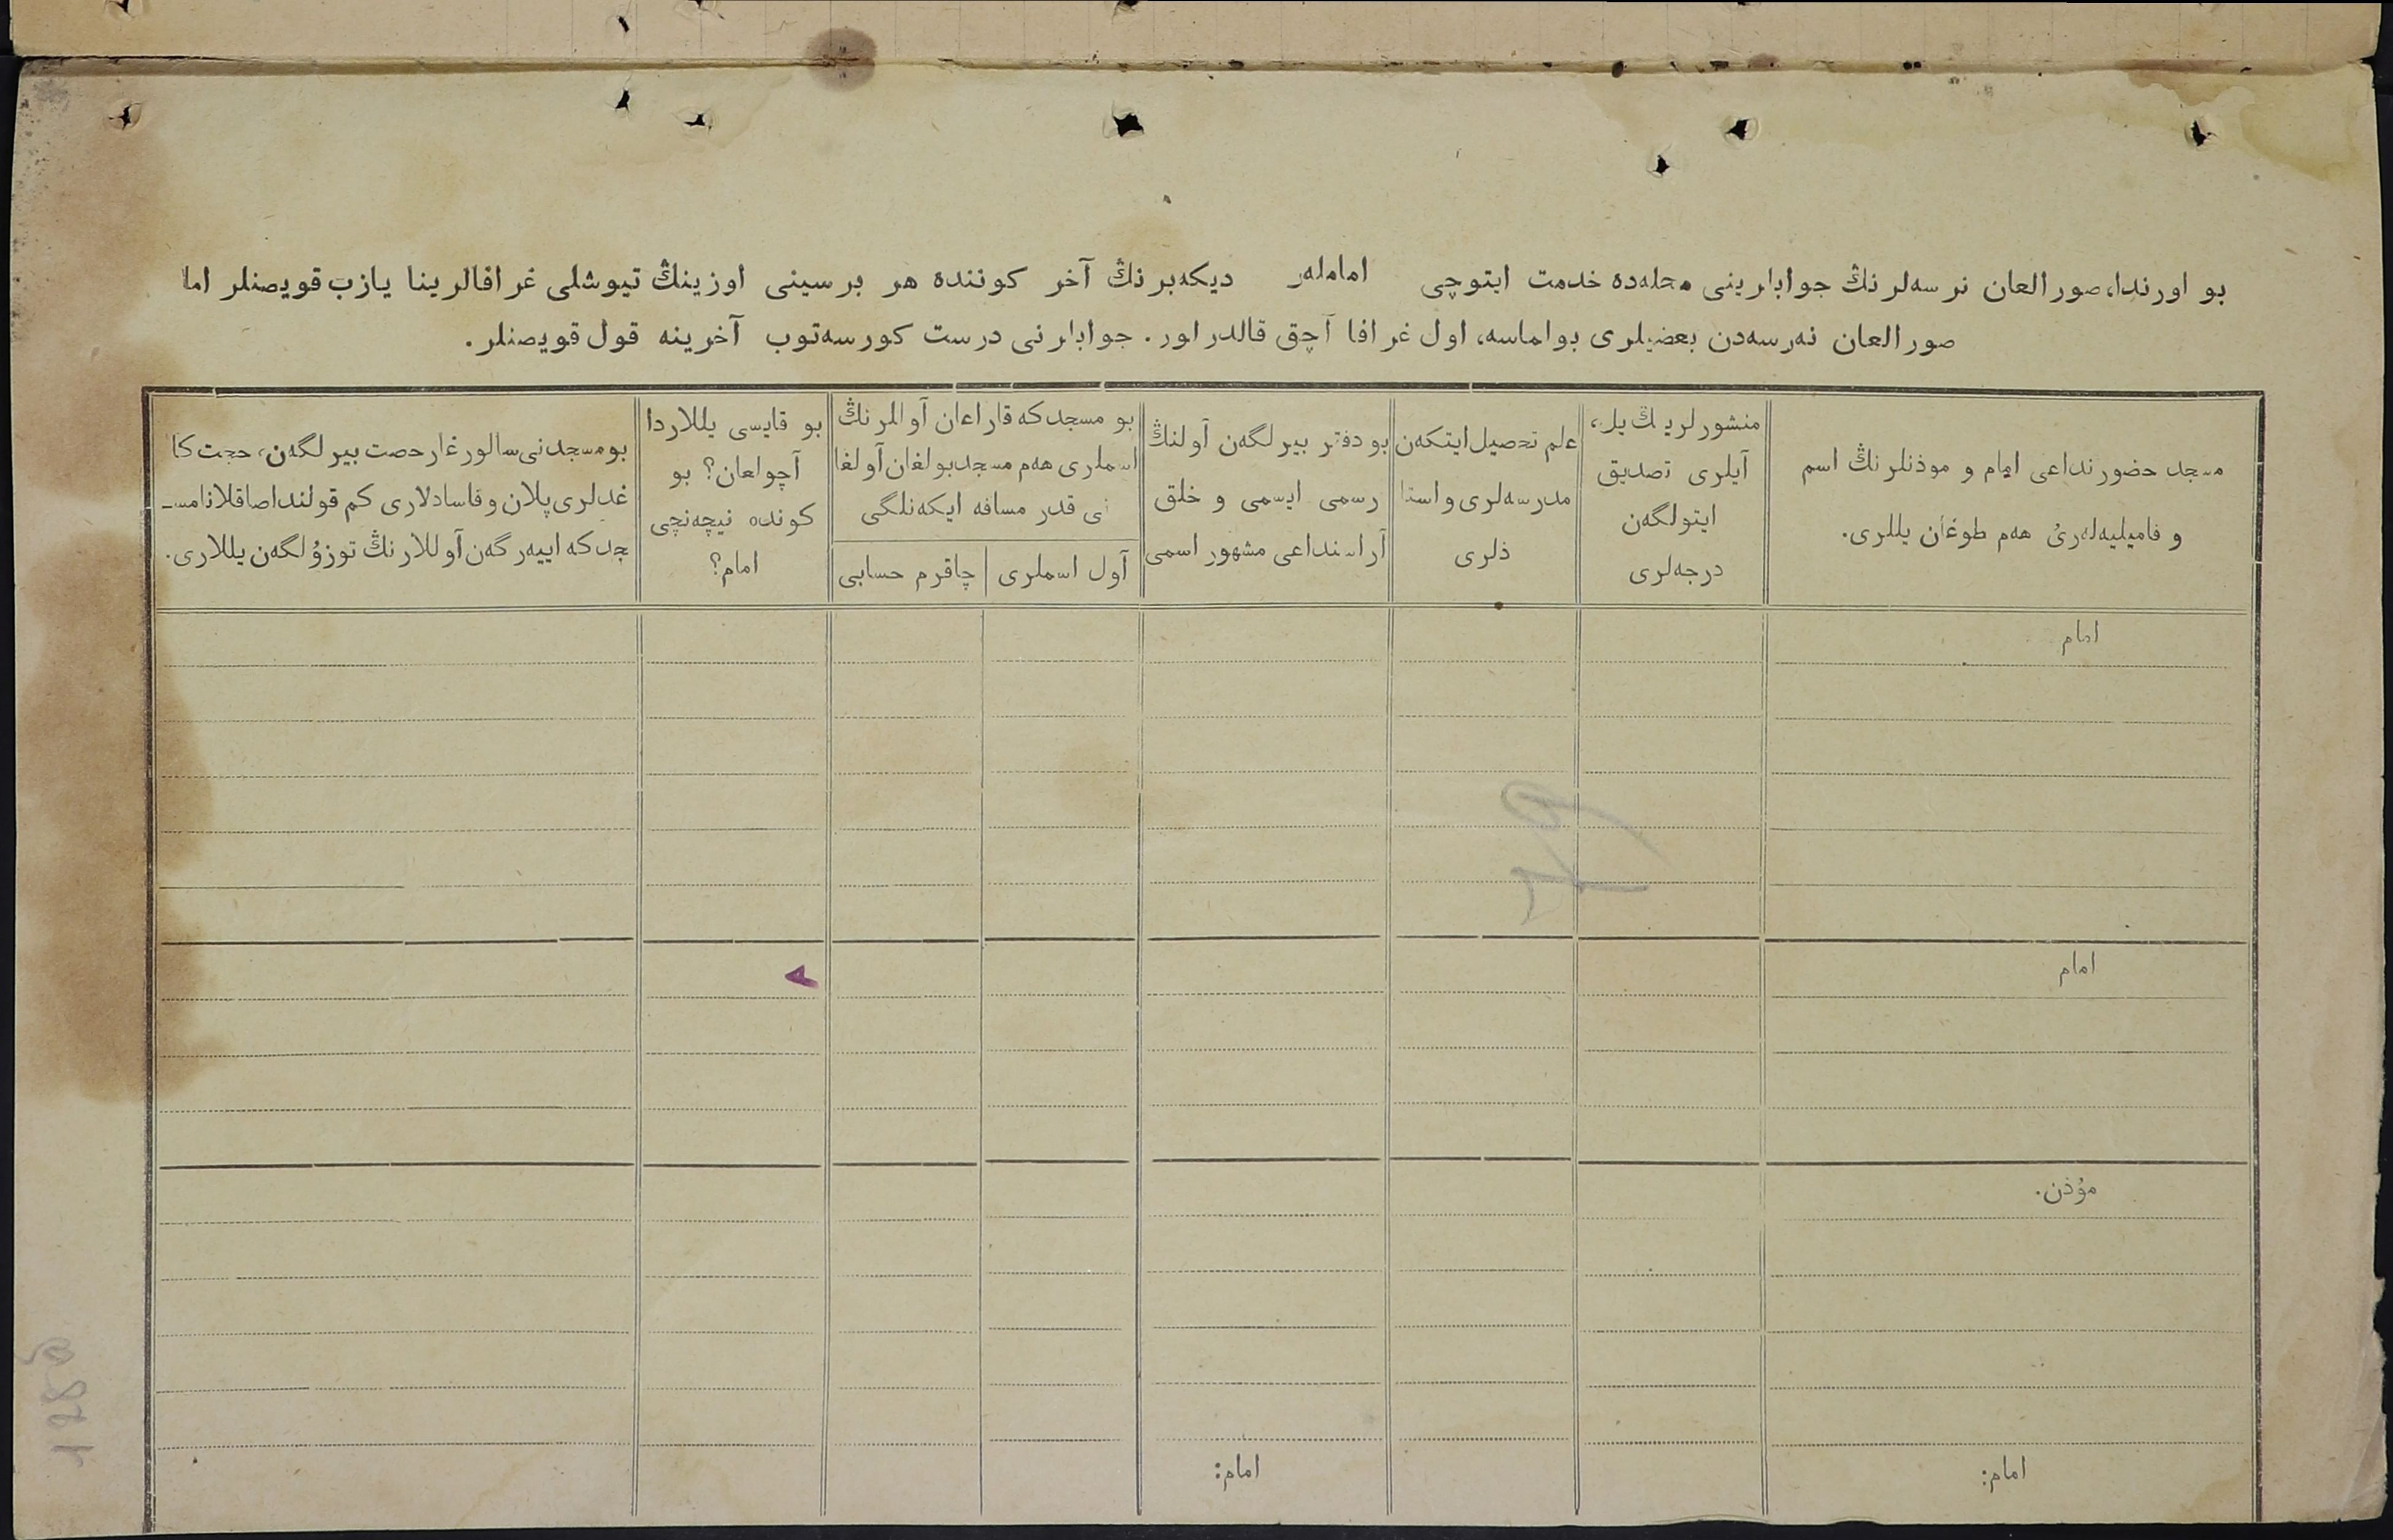 بو اورندا، صورالعان نرسه‌لرنڭ جوابلرينى محله‌ده خدمت ايتوچى امامله‌ر ديكه‌برنڭ آخر كوننده هر برسينى اوزينڭ تيوشلى غرافالرينا يازب قويصنلر اما
صورالعان نه‌رسه‌دن بعضيلرى بولماسه، اول غرافا آچق قالدرلور. جوابلرنى درست كورسه‌توب آخرينه قول قويصنلر.
مسجد حضورنداعى امام و موذنلرنڭ اسم
و فاميليه‌له‌رىٔ هه‌م طوغان يللرى.
منشورلرينڭ يل،
آيلرى تصديق
ايتولگه‌ن
درجه‌لرى
علم تحصيل ايتكه‌ن
مدرسه‌لرى و استا
ذلرى
بو دفتر بيرلگه‌ن آولنڭ
رسمى ايسمى و خلق
آراسنداعى مشهور اسمى
بو مسجدكه قاراعان آوللرنڭ
اسملرى هه‌م مسجد بولغان آولغا
نى قدر مسافه ايكه‌نلگى
آول اسملرى
چاقرم حسابى
بو قايسى يللاردا
آچولعان؟ بو
كونده نيچه‌نچى
امام؟
بو مسجدنى سالورغا رحصت بيرلگه‌ن، حجت كا
غدلرى پلان و فاسادلارى كم قولندا صاقلانا مسـ
جدكه اييه‌رگه‌ن آوللارنڭ توزۇلگه‌ن يللارى.
امام
امام
مۇذن.
امام:
امام: